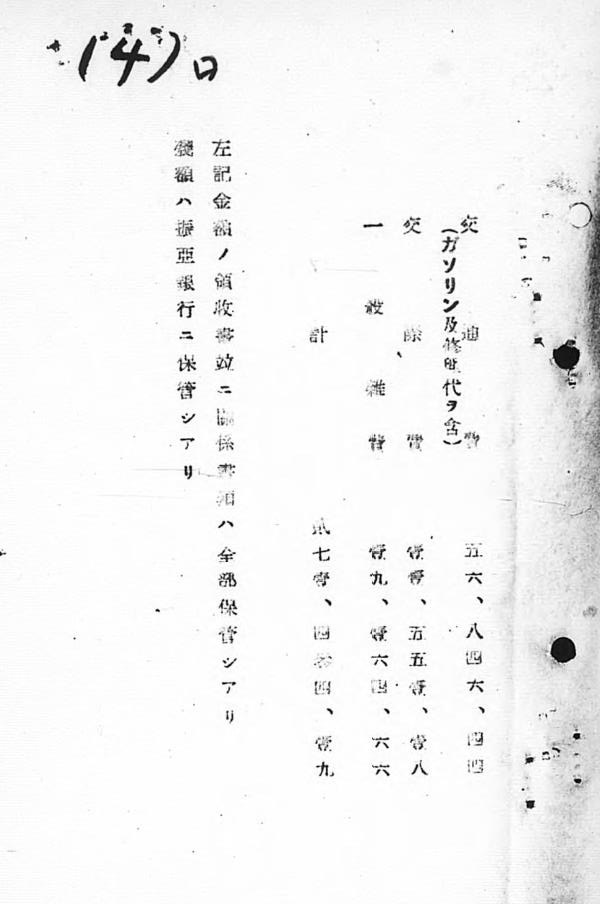 交通費 五六、八四六、四四
(ガソリン及修理代ヲ含)
交際費 壹壹、五五壹、壹八
一般雑費 壹九、壹六四、六六
計 貳七壹、四参四、壹九
左記金額ノ領收書竝ニ關係書類ハ全部保管シアリ
殘額ハ振亞銀行ニ保管シアリ
(4)